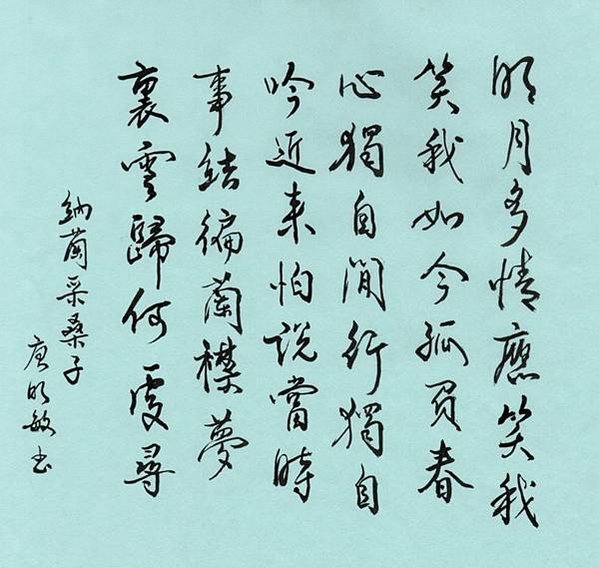 明月多情應笑我
笑我如今孤負春
心獨自閒行獨自
吟近来怕說當時
事結徧蘭襟夢
裏雲歸何處尋
納蘭采桑子
唐明敏书